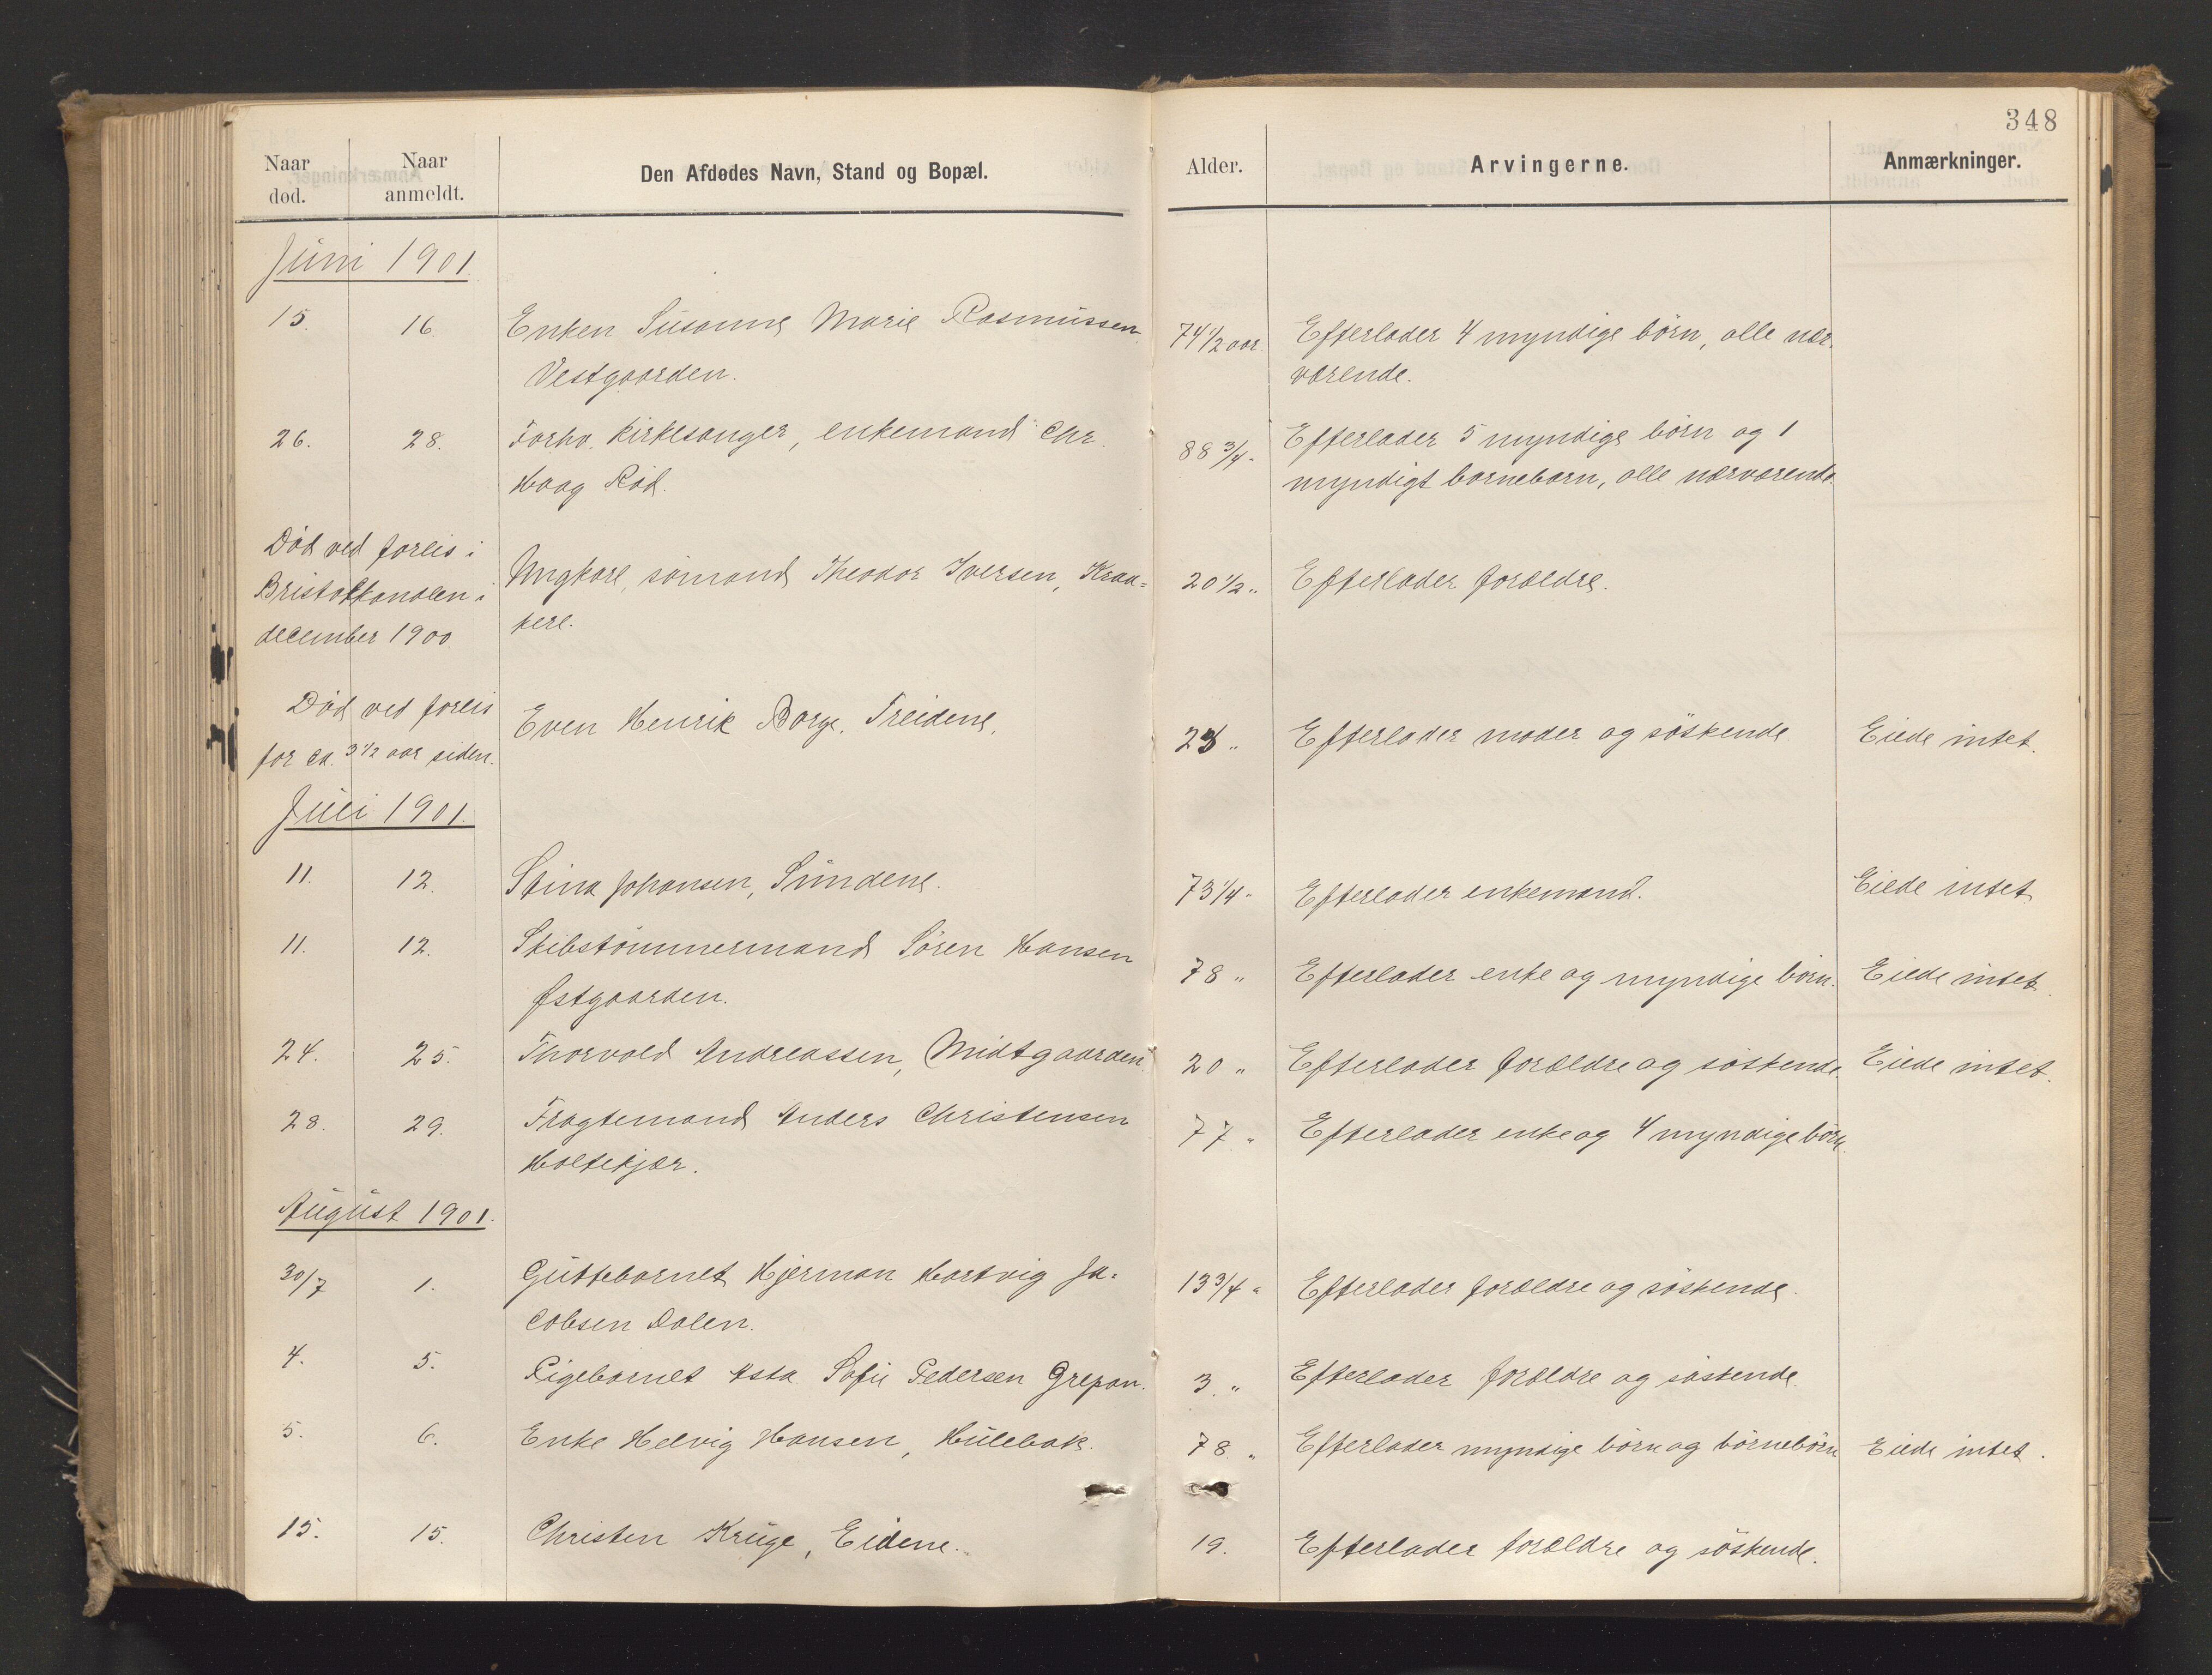 348
Naar død.
Naar anmeldt.
Den Afdødes Navn, Stand og Bopæl.
Alder.
Arvingerne.
Anmærkninger.
Juni 1901.
15. 16. Enken Susanne Marie Rasmussen 74 1/2 aar. Efterlader 4 myndige børn, alle nær-
Vestgaarden. værende.
26. 28. Forhv. kirkesanger, enkemand Chr. 88 3/4 " Efterlader 5 myndige børn og 1
Haag Rød. myndigt barnebarn, alle nærværende.
Død ved forlis i
Bristolkanalen i Ungkarl, sømand Theodor Iversen, Kraa= 20 1/2 " Efterlader forældre.
december 1900. kere.
Død ved forlis Even Henrik Borge, Treidene, 23 " Efterlader moder og søskende. Eiede intet.
for ca. 3 1/2 aar siden.
Juli 1901.
11. 12. Stina Johansen, Sundene. 73 1/4 " Efterlader enkemand. Eiede intet
11. 12. Skibstømmermand Søren Hansen 78 " Efterlader enke og myndige børn. Eiede intet.
Østgaarden.
24. 25. Thorvald Andreassen, Midtgaarden. 20 " Efterlader forældre og søskende. Eiede intet.
28. 29. Fragtemand Anders Christensen 77 " Efterlader enke og 4 myndige børn.
Holtekjær.
August 1901.
30/7 1. Guttebarnet Hjerman Hartvig Ja= 13 3/4 " Efterlader forældre og søskende.
cobsen Dalen.
4. 5. Pigebarnet Asta Sofie Pedersen Grepan. 3. " Efterlader forældre og søskende.
5. 6. Enke Helvig Hansen, Hulebak. 78. " Efterlader myndige børn og børnebørn Eiede intet.
15. 15. Christen Krüge, Eidene. 19. Efterlader forældre og søskende.